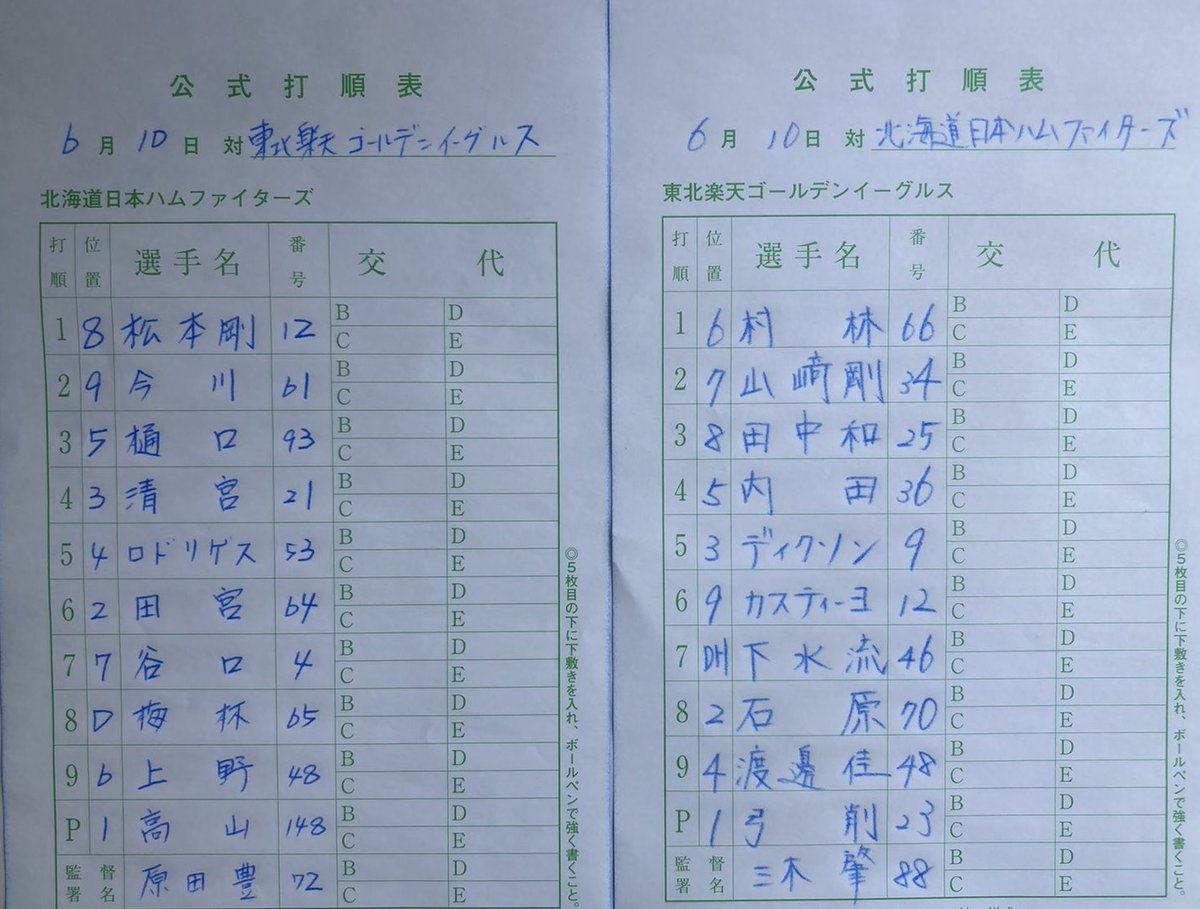 公式打順表
6月10日 対 東北楽天ゴールデンイーグルス
北海道日本ハムファイターズ
打順 位置 選手名 番号 交代
1 8 松本剛 12 B D C E
2 9 今川 61 B D C E
3 5 樋口 93 B D C E
4 3 清宮 21 B D C E
5 4 ロドリゲス 53 B D C E
6 2 田宮 64 B D C E
7 7 谷口 4 B D C E
8 D 梅林 65 B D C E
9 6 上野 48 B D C E
P 1 高山 148 B D C E
監督署名 原田豊 72 B D C E
◎5枚目の下に下敷きを入れ、ボールペンで強く書くこと。
公式打順表
6月10日 対 北海道日本ハムファイターズ
東北楽天ゴールデンイーグルス
打順 位置 選手名 番号 交代
1 6 村林 66 B D C E
2 7 山﨑剛 34 B D C E
3 8 田中和 25 B D C E
4 5 内田 36 B D C E
5 3 ディクソン 9 B D C E
6 9 カスティーヨ 12 B D C E
7 DH 下水流 46 B D C E
8 2 石原 70 B D C E
9 4 渡邊佳 48 B D C E
P 1 弓削 23 B D C E
監督署名 三木肇 88 B D C E
◎5枚目の下に下敷きを入れ、ボールペンで強く書くこと。